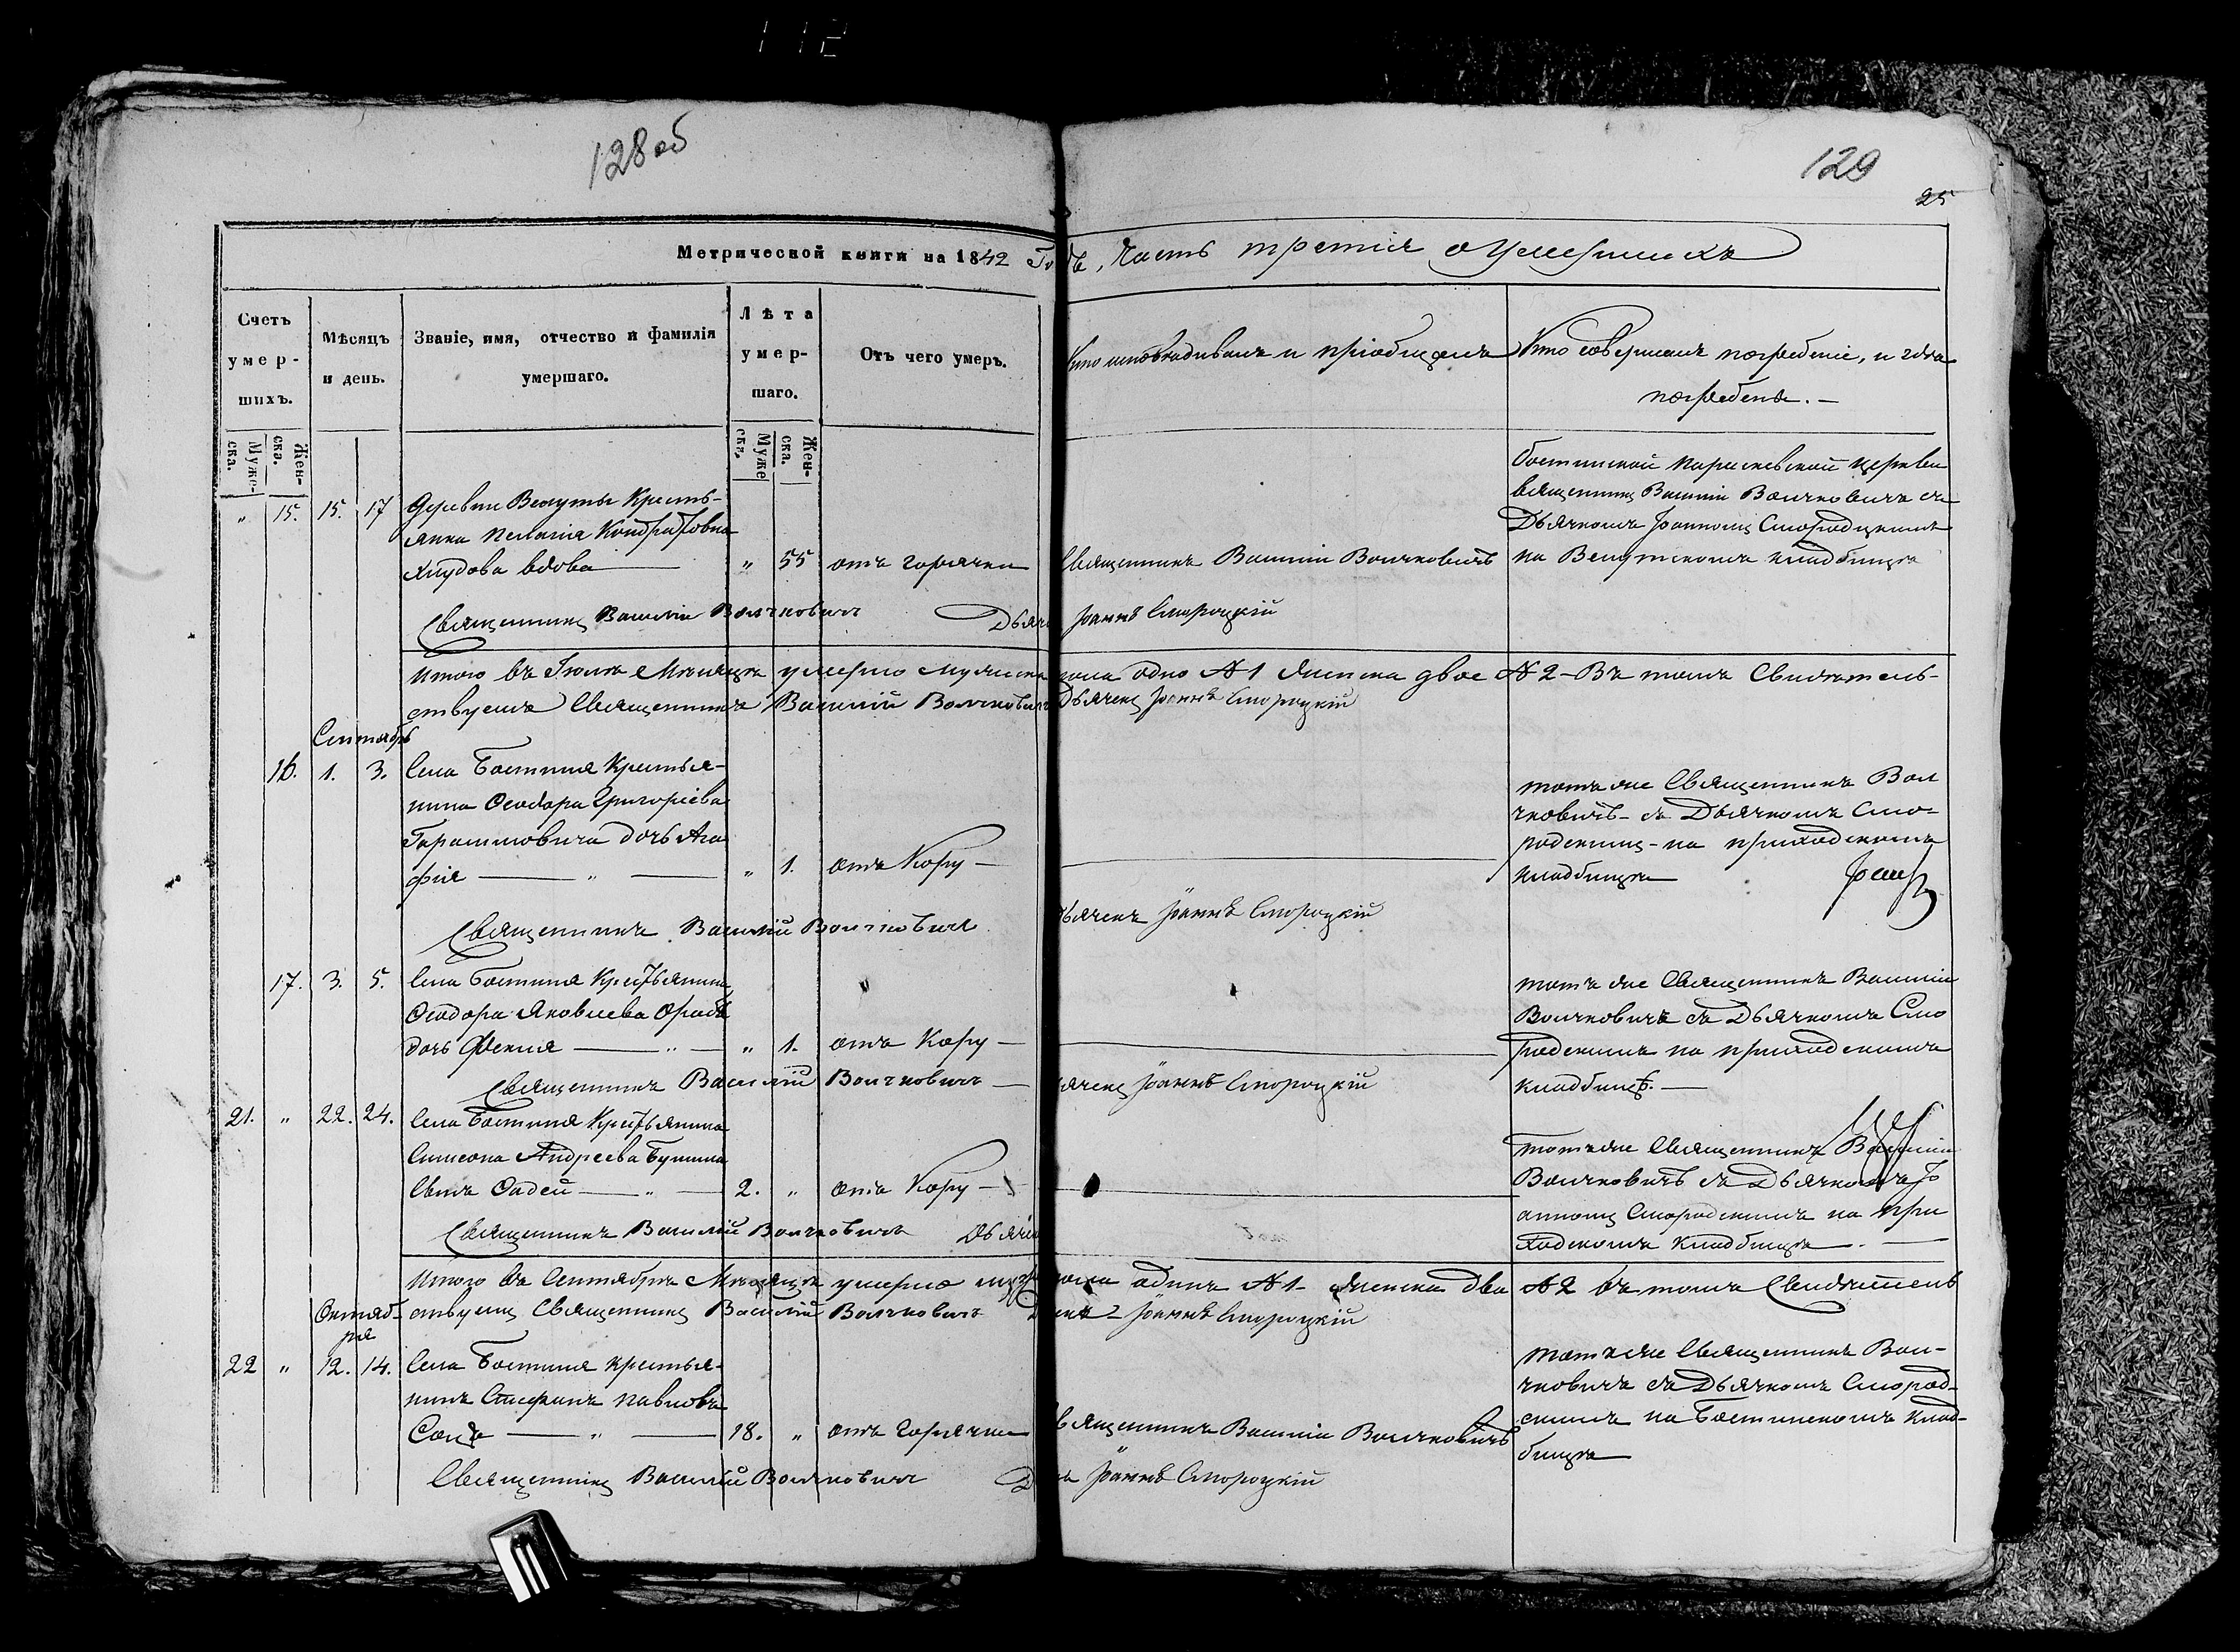 112
128 об
129
25
Метрической книги на 1842 Годъ, Часть третія о Умершихъ
Счетъ умер-шихъ.
Мѣсяцъ и день.
Званіе, имя, отчество и фамилія умершаго.
Лѣта умер-шаго.
Отъ чего умеръ.
Кто исповѣдывалъ и пріобщалъ
Кто совершалъ погребеніе, и гдѣ погребены.
Муже-ска.
Жен-ска.
Муже ска.
Жен-ска.
„ 15. 15. 17
Деревни Велуты Кресть-
янка Пелагія Кондратовна
вдова „ 55 отъ горячки
Священникъ Василій Волчковичъ
Бостынской церкви
Священникъ Василій Волчковичъ съ
Дьячкомъ Іоанномъ Смородскимъ
на Велутскомъ кладбищѣ
Священникъ Василій Волчковичъ Дьячекъ Іоаннъ Смородскій
Итого въ Іюлѣ Мѣсяцѣ умерло мужеска пола одно № 1 женска двое № 2 – Въ томъ Свидѣтель-
ствуемъ Священникъ Василій Волчковичъ Дьячекъ Іоаннъ Смородскій
Сентябрь
16. 1. 3.
Села Бостыня Крестья-
нина Ѳеодора Григоріева
Герасимовича дочь Ага
фія „ 1. отъ Кору
тотъ же Священникъ Вол
чковичъ съ Дьячкомъ Смо-
родскимъ на приходскомъ
кладбищѣ
Священникъ Василій Волчковичъ Дьячекъ Іоаннъ Смородскій
17. 3. 5.
Села Бостыня Крестьянина
Ѳеодора Яковлева
дочь Ѳекля „ 1. отъ Кору
тотъ же Священникъ Василій
Волчковичъ съ Дьячкомъ Смо
родскимъ на приходскомъ
кладбищѣ.
Священникъ Василій Волчковичъ Дьячекъ Іоаннъ Смородскій
21. „ 22. 24.
Села Бостыня Крестьянина
Симеона Андреева
Сынъ Фадей 2. „ отъ Кору
тотъ же Священникъ Василій
Волчковичъ съ Дьячкомъ Іо
анномъ Смородскимъ на при
ходскомъ Кладбищѣ
Священникъ Василій Волчковичъ Дьячекъ
Итого въ Сентябрѣ Мѣсяцѣ умерло муж пола одинъ № 1 – женска два № 2 въ томъ Свидѣтель
ствуемъ Священникъ Василій Волчковичъ Іоаннъ Смородскій
Октяб-
ря
22 „ 12. 14.
Села Бостыня крестья-
нинъ Стефанъ Павловъ
18. „ отъ горячки
Священникъ Василій Волчковичъ
тотъ же Священникъ Вол-
чковичъ съ Дьячкомъ Смород-
скимъ на Бостынскомъ клад-
бищѣ
Священникъ Василій Волчковичъ Іоаннъ Смородскій